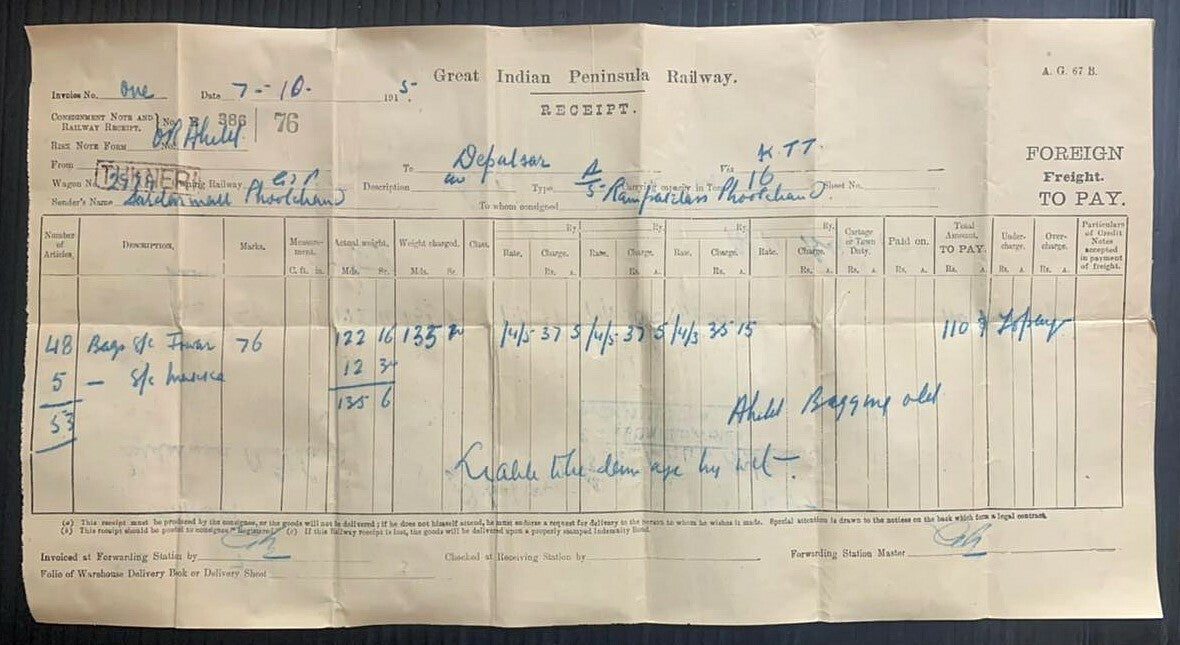 Great Indian Peninsula Railway.
A. G. 67 B.
RECEIPT.
Invoice No. one Date 7-10- 1915.
CONSIGNMENT NOTE AND RAILWAY RECEIPT. } No. 386 76
RISK NOTE FORM No. OR
From
To Depalsar
Via K.T.T.
Wagon No. Owning Railway G.I.P. Description Type A/5 Carrying capacity in Tons 16 Sheet No.
Sender's Name Sardarmall Phoolchand To whom consigned Rampartass Phoolchand.
FOREIGN
Freight.
TO PAY.
Number of Articles. DESCRIPTION, Marks. Measurement. Actual weight. Weight charged. Class. Ry. Ry. Ry. Ry. Cartage or Town Duty. Paid on. Total Amount. TO PAY. Under-charge. Over-charge. Particulars of Credit Notes accepted in payment of freight.
Rate. Charge. Rate. Charge. Rate. Charge. Rate. Charge.
C. ft. in. Mds. Sr. Mds. Sr. Rs. A. Rs. A. Rs. A. Rs. A. Rs. A. Rs. A. Rs. A. Rs. A. Rs. A.
48 Bags S/c Jowar 76 122 16 135 /4/5 37 5 /4/5 37 5 /4/3 35 15 110 9 To pay
5 — S/c 12 3
53 135 6
Bagging old
Liable to damage by wet —
(a) This receipt must be produced by the consignee, or the goods will not be delivered; if he does not himself attend, he must endorse a request for delivery to the person to whom he wishes it made. Special attention is drawn to the notices on the back which form a legal contract.
(b) This receipt should be posted to consignee "Registered." (c) If this Railway receipt is lost, the goods will be delivered upon a properly stamped Indemnity Bond.
Invoiced at Forwarding Station by
Checked at Receiving Station by
Forwarding Station Master
Folio of Warehouse Delivery Book or Delivery Sheet